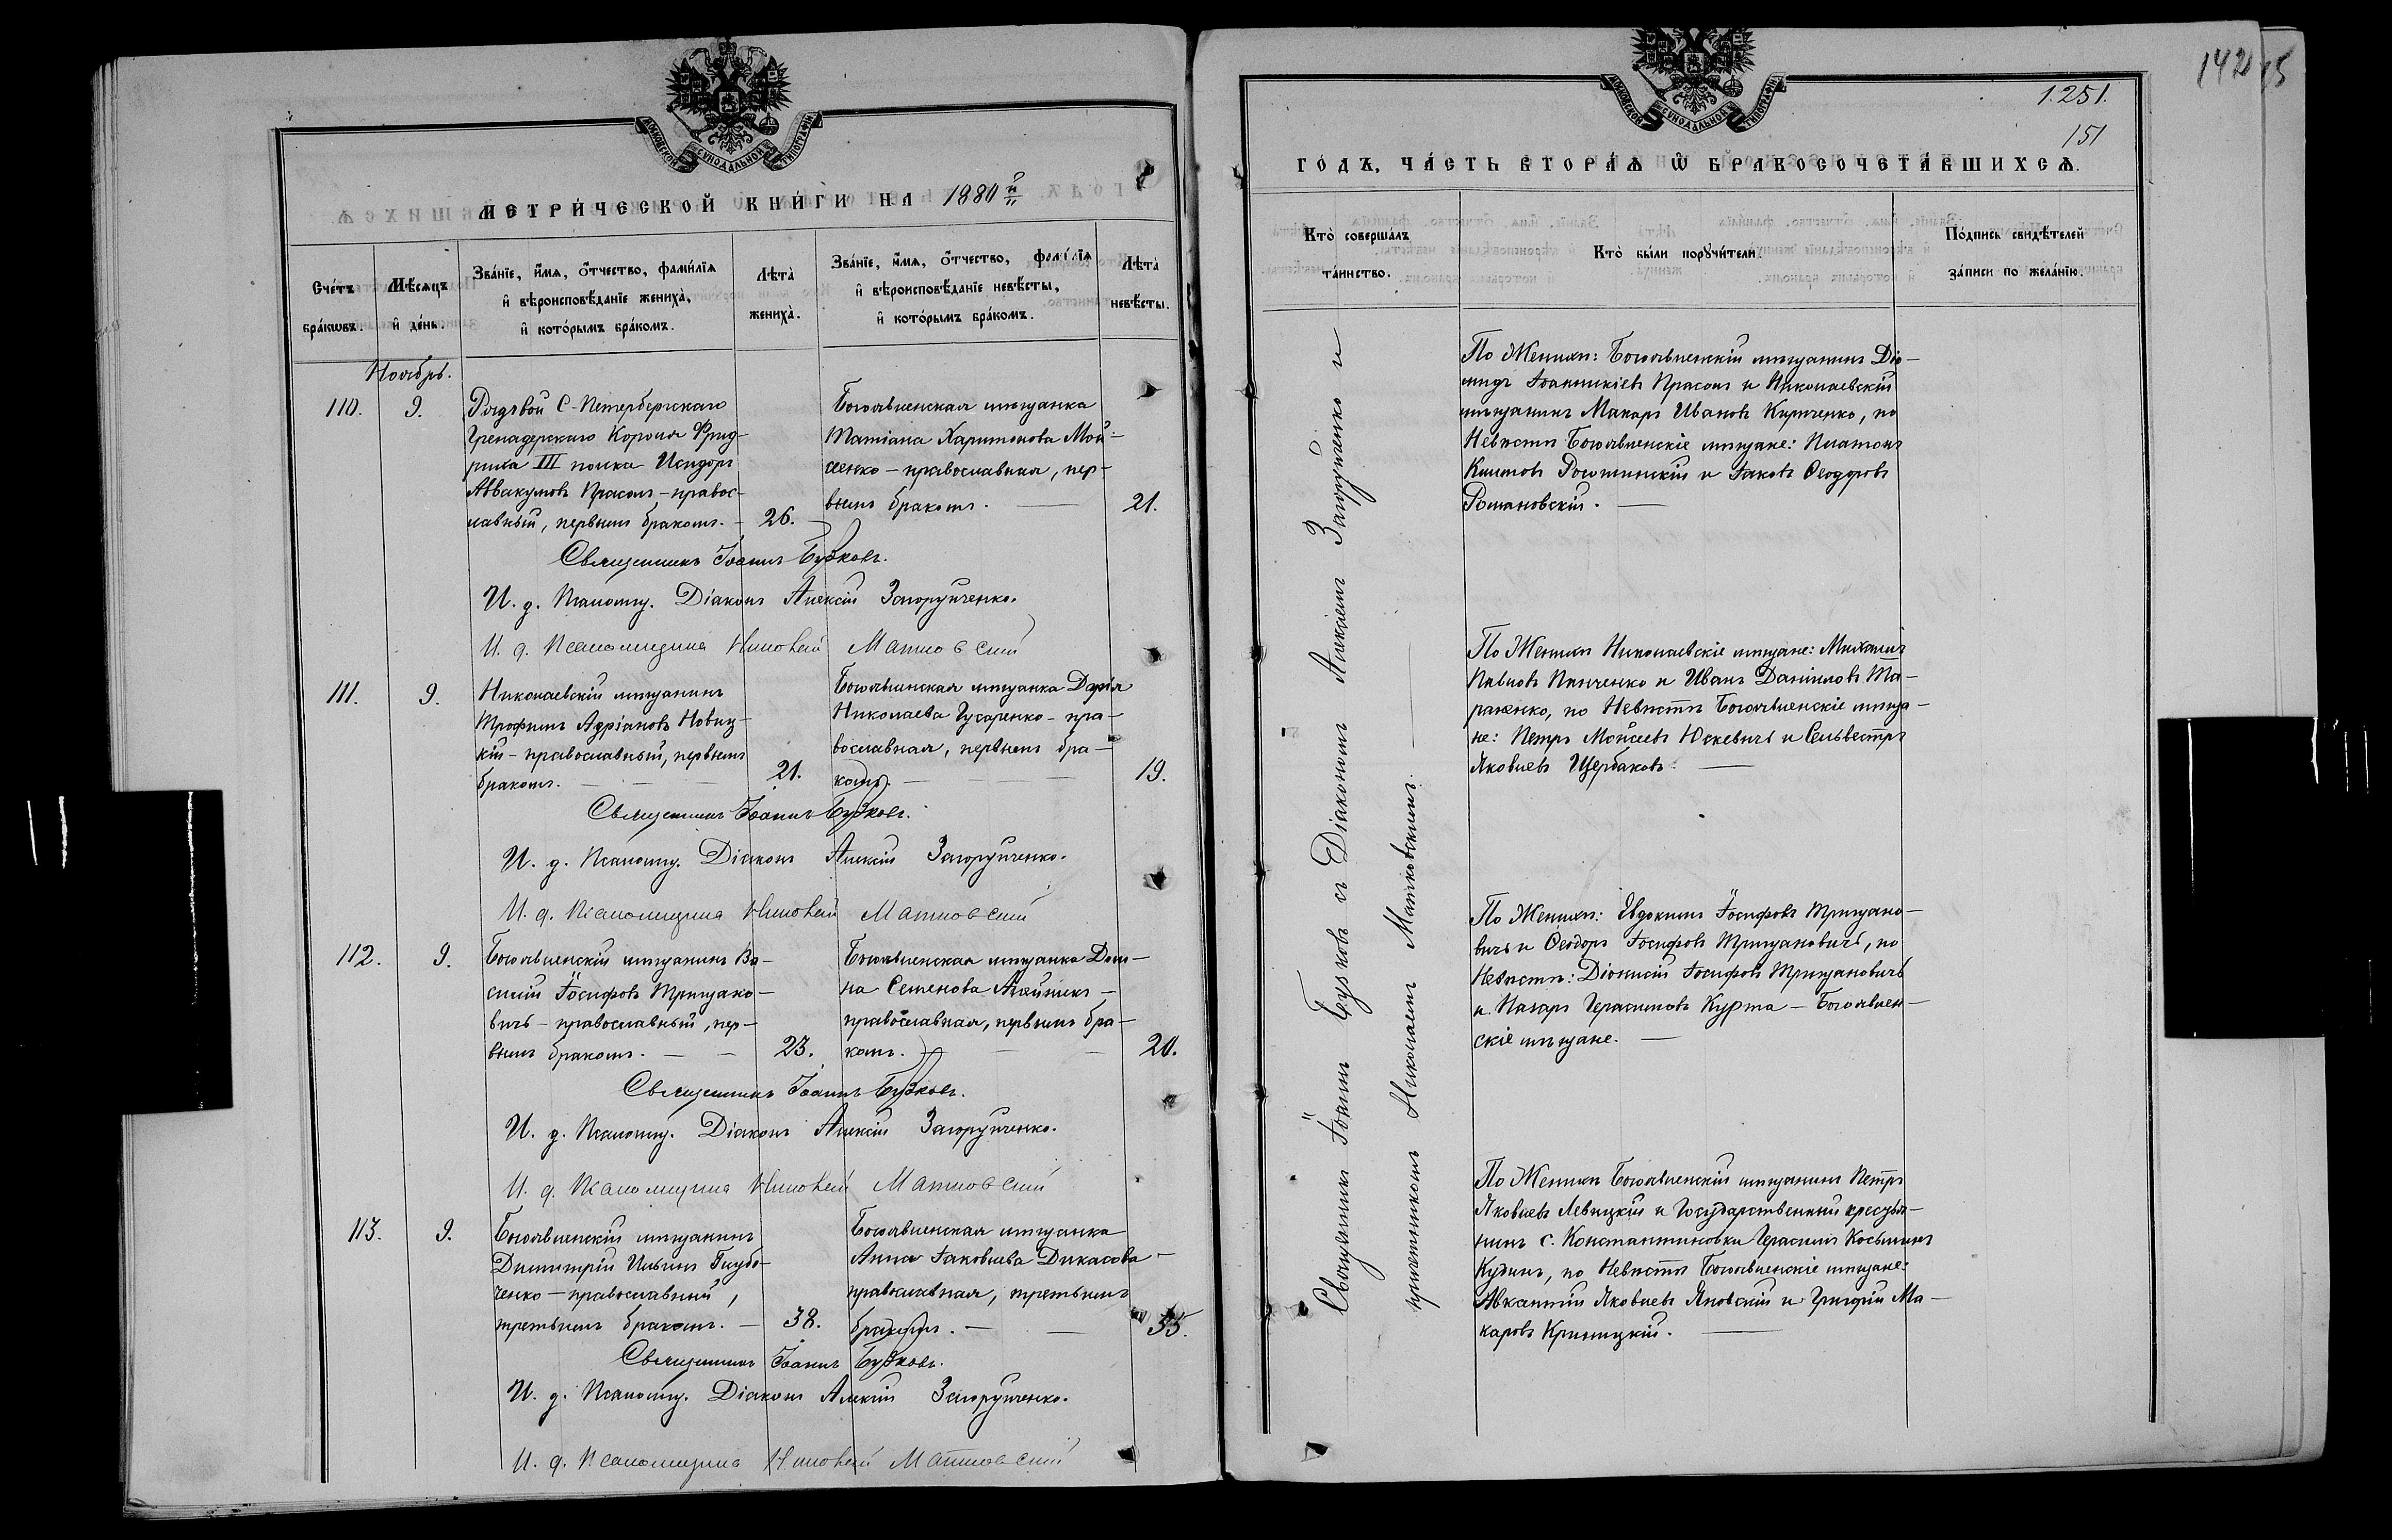 МОСКОВСКОЙ СѴНОДАЛЬНОЙ ТИПОГРАФІИ
МЕТРИ́ЧЕСКОЙ КНИ́ГИ НА 1880 й
Сче́тъ бра́кωвъ.
Мѣ́сяцъ и҆ де́нь.
Зва́нїе, и҆́мѧ, ѻ҆́тчество, фами́лїѧ
и҆ вѣроисповѣ́данїе жениха̀,
и҆ кото́рымъ бра́комъ.
Лѣта̀
жениха̀.
Зва́нїе, и҆́мѧ, ѻ҆́тчество, фами́лїѧ
и҆ вѣроисповѣ́данїе невѣ́сты,
и҆ кото́рымъ бра́комъ.
Лѣта̀
невѣ́сты.
Ноябрь.
110. 9.
Рядовой С-Петербергскаго
Гренадерскаго Короля Фрид-
риха III полка Исидоръ
Аввакумовъ Прасолъ - правос-
лавный, первымъ бракомъ. - 26.
Богоявленская мѣщанка
Татіана Харитонова Мой-
сеенко - православная, пер-
вымъ бракомъ. — 21.
Священникъ Іоаннъ Бузковъ.
И. д. Псаломщ. Діаконъ Алексій Загоруйченко.
И. д. Псаломщика Николай Матковскій
111. 9.
Николаевскій мѣщанинъ
Трофимъ Адріановъ Новиц-
кій - православный, первымъ
бракомъ. — — 21.
Богоявленская мѣщанка Дарія
Николаева Гусаренко - пра-
вославная, первымъ бра-
комъ. — — — 19.
Священникъ Іоаннъ Бузковъ.
И. д. Псаломщ. Діаконъ Алексій Загоруйченко.
И. д. Псаломщика Николай Матковскій
112. 9.
Богоявленскій мѣщанинъ Ва-
силій Іосифовъ Трищано-
вичъ - православный, пер-
вымъ бракомъ. — — 23.
Богоявленская мѣщанка Дом-
на Семенова -
православная, первымъ бра-
комъ. — — 20.
Священникъ Іоаннъ Бузковъ.
И. д. Псаломщ. Діаконъ Алексій Загоруйченко.
И. д. Псаломщика Николай Матковскій
113. 9.
Богоявленскій мѣщанинъ
Димитрій Ильинъ Голуб-
ченко - православный,
третьимъ бракомъ. — 38.
Богоявленская мѣщанка
Анна Іаковлева Дикасова -
православная, третьимъ
бракомъ. — — 35.
Священникъ Іоаннъ Бузковъ.
И. д. Псаломщ. Діаконъ Алексій Загоруйченко.
И. д. Псаломщика Николай Матковскій
142
1.251.
151
МОСКОВСКОЙ СѴНОДАЛЬНОЙ ТИПОГРАФІИ
ГО́ДЪ, ЧА́СТЬ ВТОРА́Ѧ Ѽ БРАКОСОЧЕТА́ВШИХСѦ.
Кто̀ соверша́лъ
та́инство.
Кто̀ бы́ли поручи́тели.
По́дпись свидѣ́телей
за́писи по жела́нїю.
Священникъ Іоаннъ Бузковъ съ Діакономъ Алексіемъ Загоруйченко и
причетникомъ Николаемъ Матковскимъ. —
По Женихѣ: Богоявленскій мѣщанинъ Діо-
мидъ Іоанникіевъ Прасолъ и Николаевскій
мѣщанинъ Макаръ Ивановъ Кириченко, по
Невѣстѣ Богоявленскіе мѣщане: Платонъ
Климовъ Роготинскій и Іаковъ Ѳеодоровъ
Романовскій. —
По Женихѣ Николаевскіе мѣщане: Михаилъ
Павловъ Панченко и Иванъ Даніиловъ Та-
раненко, по Невѣстѣ Богоявленскіе мѣща-
не: Петръ Мойсеевъ Юскевичъ и Сильвестръ
Яковлевъ Щербаковъ. —
По Женихѣ: Евдокимъ Іосифовъ Трищано-
вичъ и Ѳеодоръ Іосифовъ Трищановичъ, по
Невѣстѣ: Діонисій Іосифовъ Трищановичъ
и Назаръ Герасимовъ Курта - Богоявлен-
скіе мѣщане. —
По Женихѣ Богоявленскій мѣщанинъ Петръ
Яковлевъ Левицкій и Государственный крестья-
нинъ с. Константиновки Герасимъ Косьминъ
Кудинъ, по Невѣстѣ Богоявленскіе мѣщане:
Авксентій Яковлевъ Яновскій и Григорій Ма-
каровъ Криницкій. —